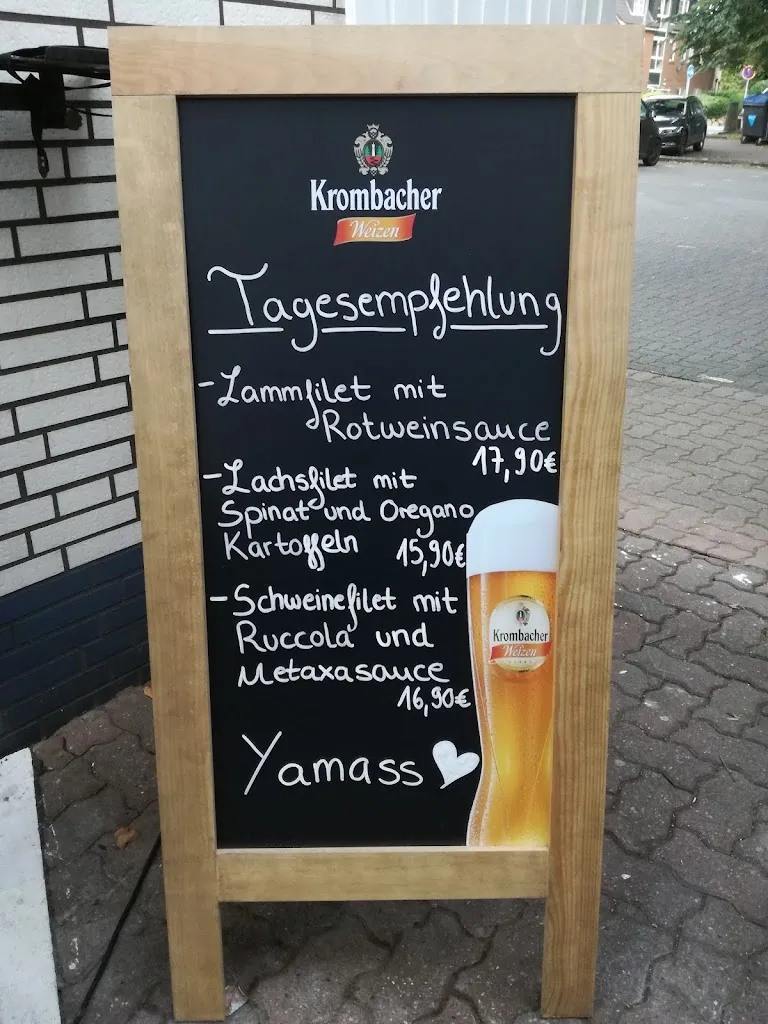 Krombacher
Weizen
Tagesempfehlung
-Lammfilet mit
Rotweinsauce
17,90€
-Lachsfilet mit
Spinat und Oregano
Kartoffeln 15,90€
-Schweinefilet mit
Ruccola und
Metaxasauce
16,90€
Yamass
Krombacher
Weizen